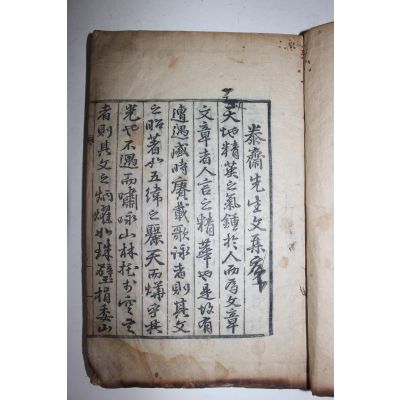 泰齋先生文集序
天地精英之氣鍾於人而爲文章
文章者人言之精華也是故有
遭遇盛時賡載歌詠者則其文
之昭著如五緯之麗天而燁乎其
光也不遇而嘯詠山林托於空言
者則其文之炳燿如珠璧捐委山